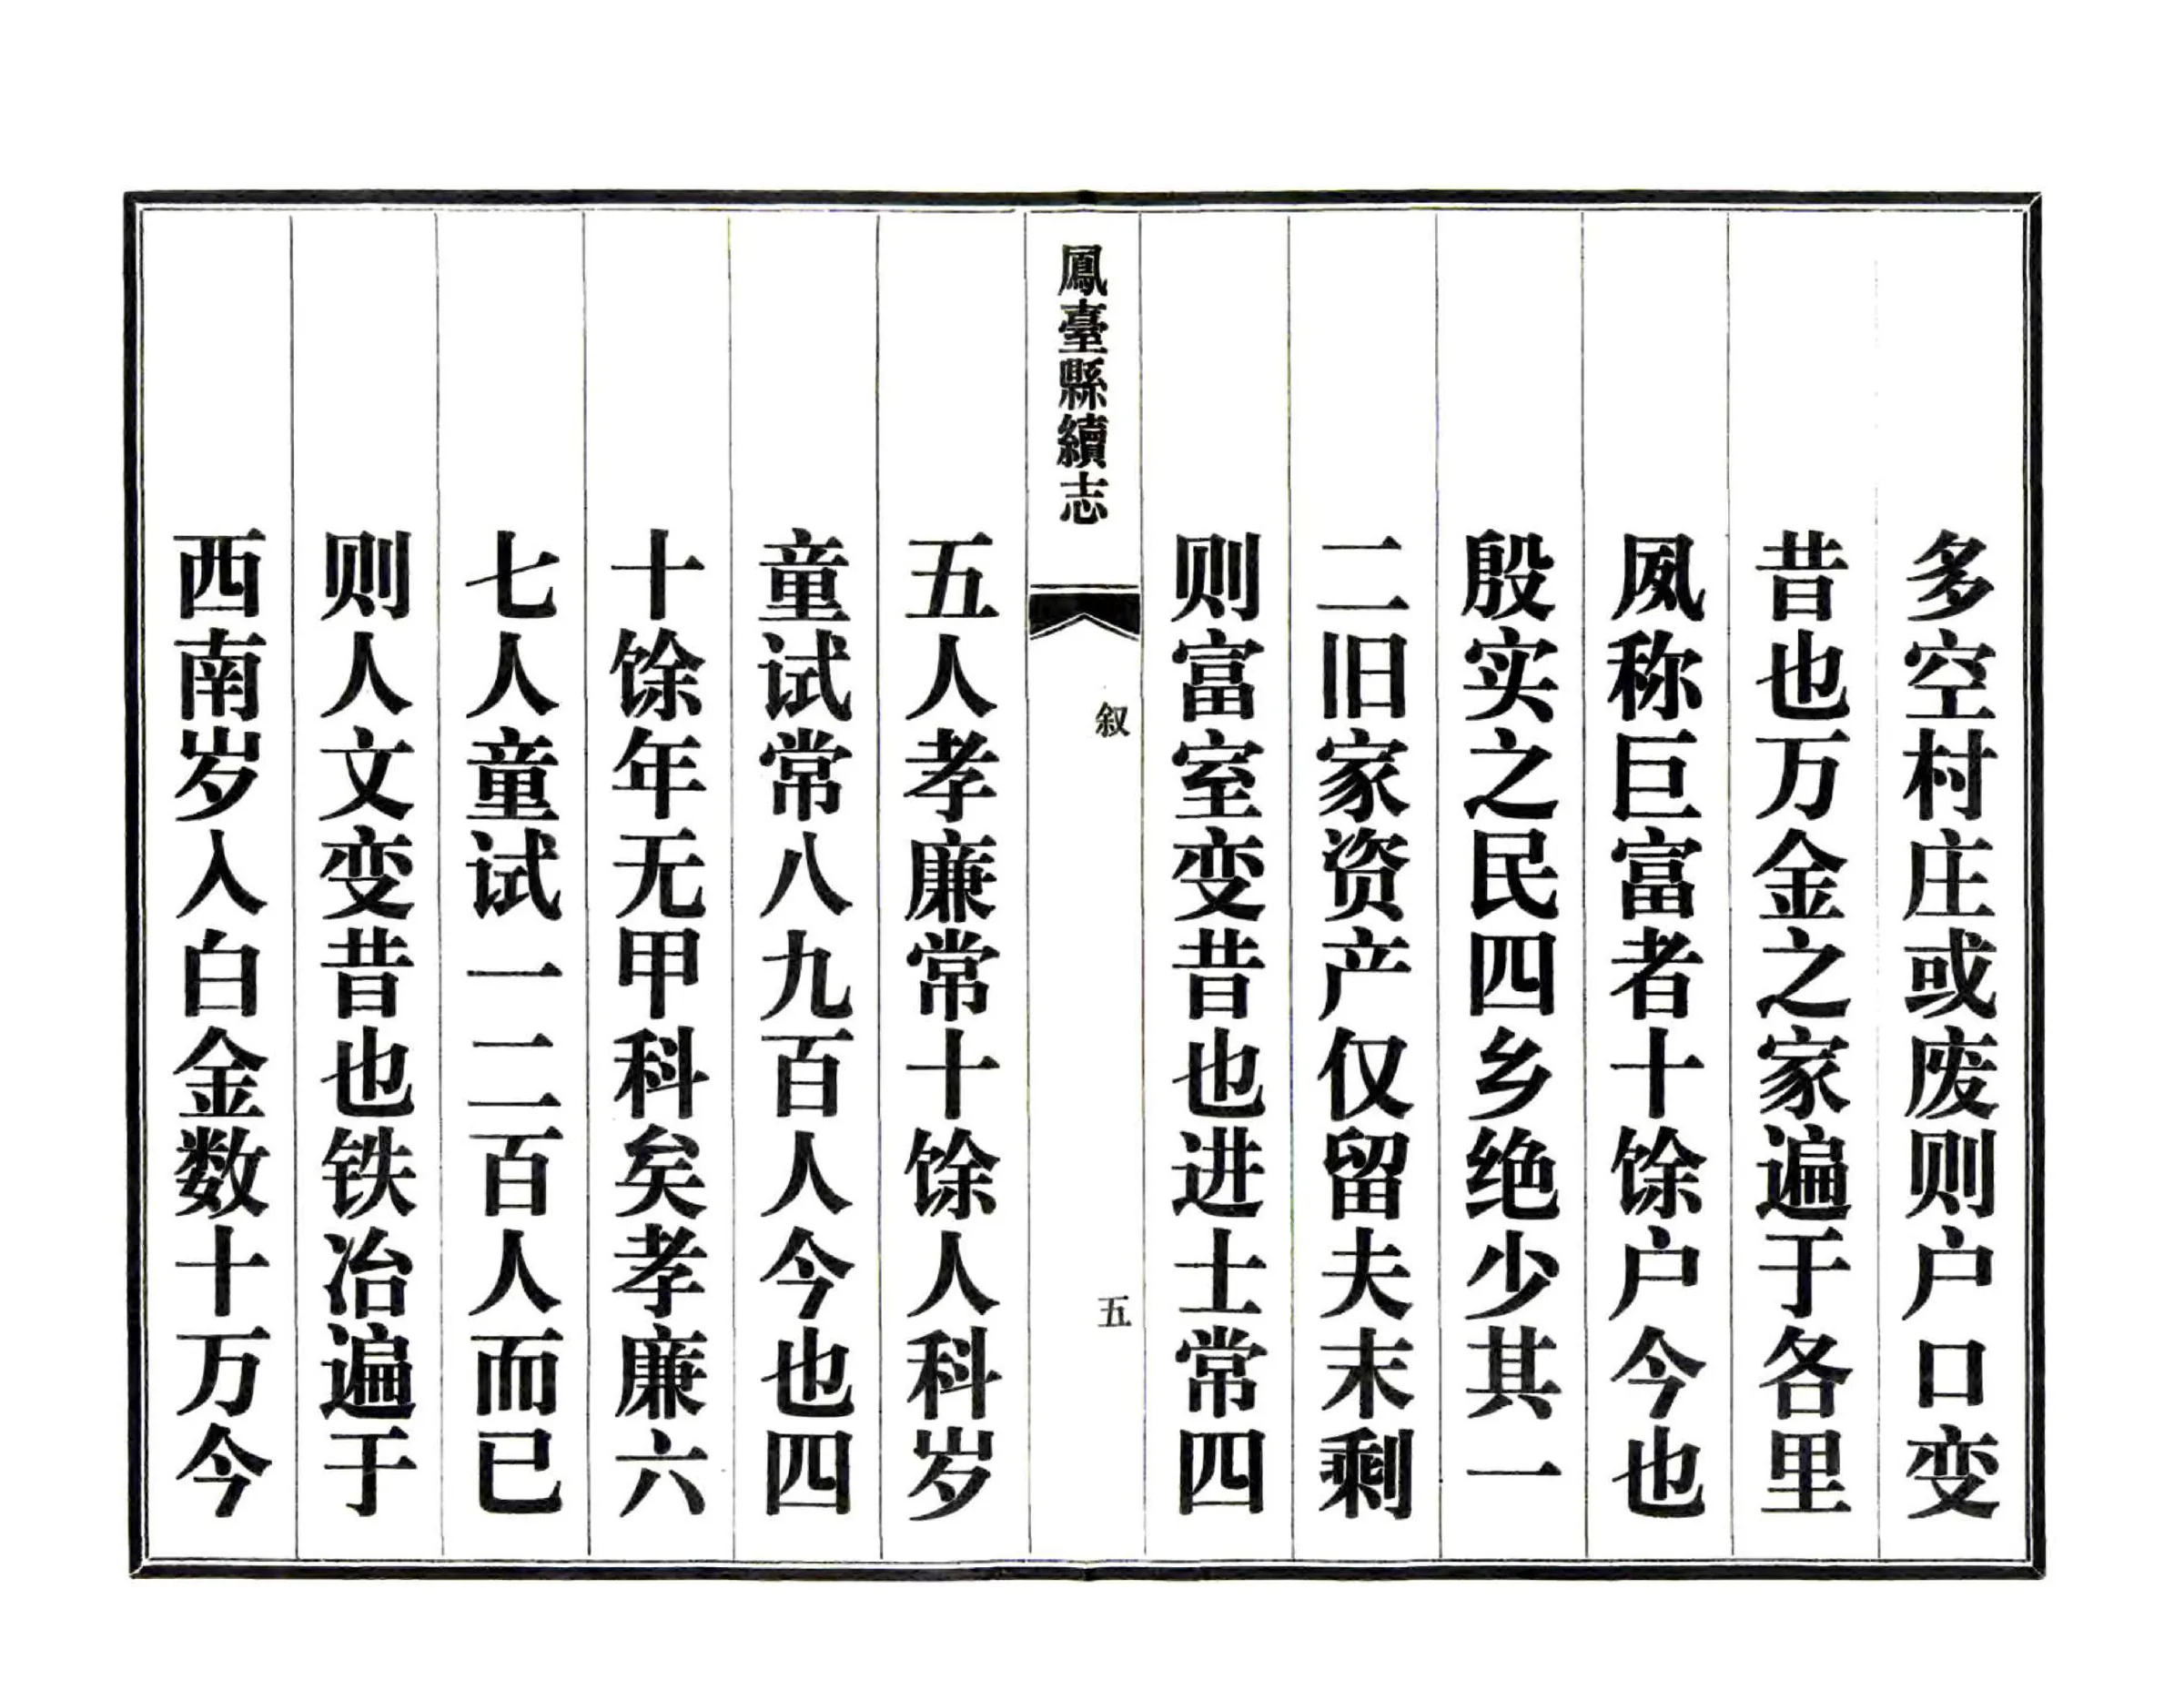 多空村庄或废则户口变
昔也万金之家遍于各里
夙称巨富者十馀户今也
殷实之民四乡绝少其一
二旧家资产仅留夫末剩
则富室变昔也进士常四
鳳臺縣續志
叙
五
五人孝廉常十馀人科岁
童试常八九百人今也四
十馀年无甲科矣孝廉六
七人童试一二百人而已
则人文变昔也铁冶遍于
西南岁入白金数十万今